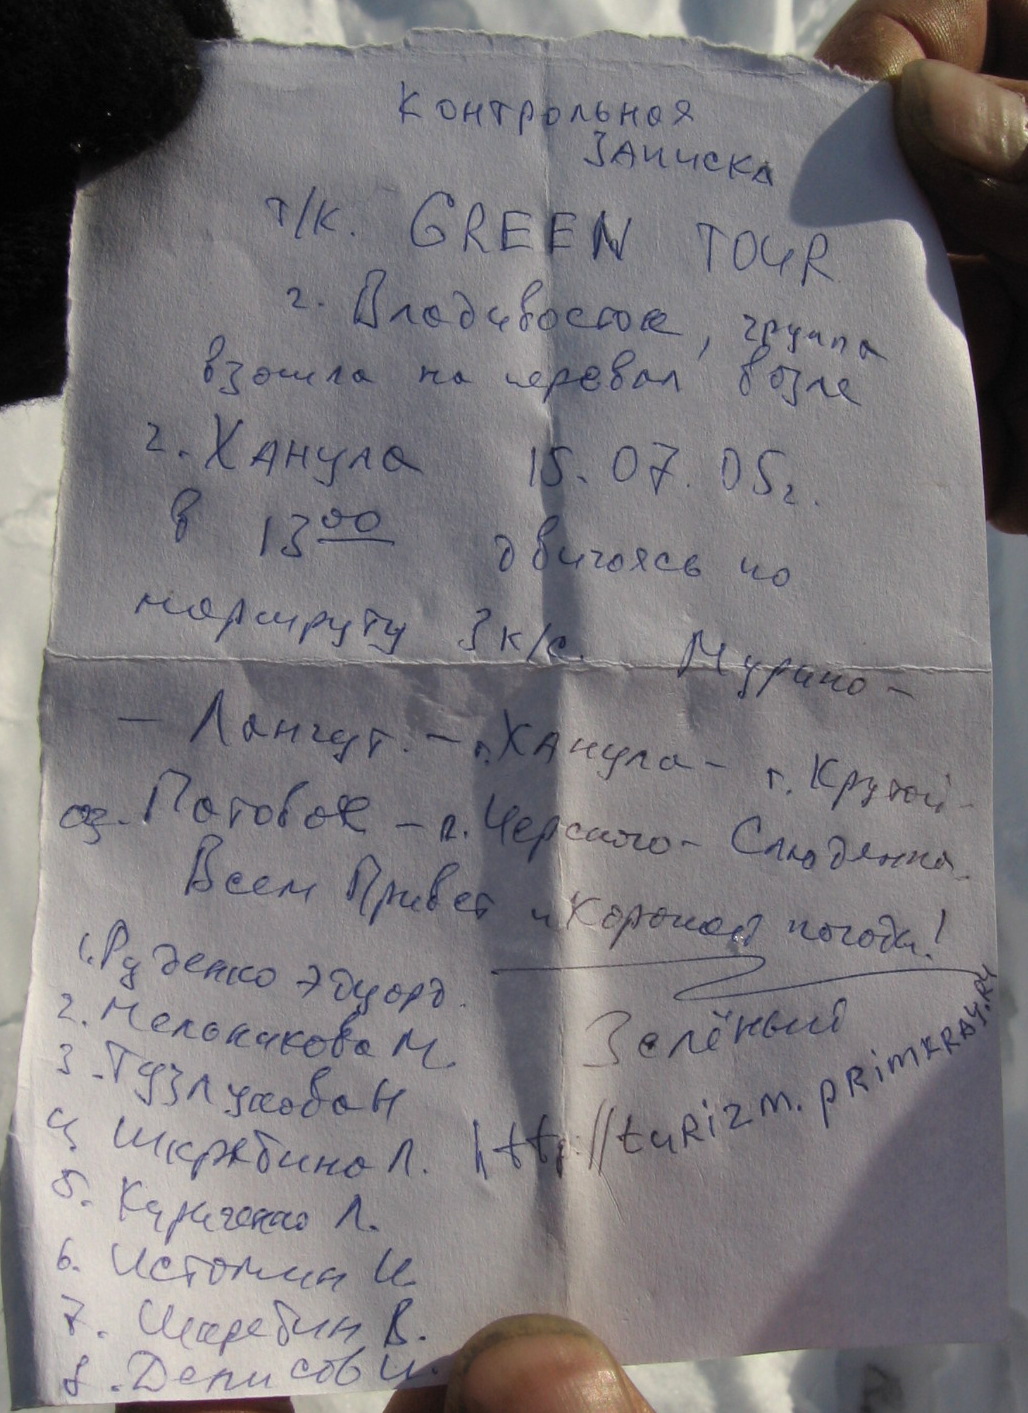 Контрольная
записка
т/к. GREEN TOUR
г. Владивосток, группа
взошла на перевал возле
г. Ханула 15.07.05г.
в 13 00 двигаясь по
маршруту 3 к/с. Мурино -
- Лангут. - г. Ханула - г. Крутой -
оз. Патовое - п. Черского - Слюдянка.
Всем Привет и Хорошей погоды!
1. Руденко Эдуард.
2. Мельникова М.
3. Тузлукова Н
4 Шкрябина Л.
5. Кириченко Л.
6. Истомин И.
7. В.
8. Денисов И.
Зелёный
http://turizm.primkray.ru